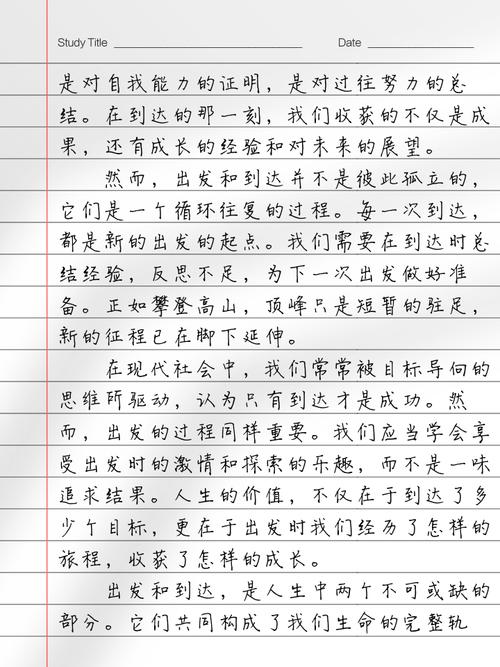 Study Title
Date
是对自我能力的证明，是对过往努力的总
结。在到达的那一刻，我们收获的不仅是成
果，还有成长的经验和对未来的展望。
然而，出发和到达并不是彼此孤立的，
它们是一个循环往复的过程。每一次到达，
都是新的出发的起点。我们需要在到达时总
结经验，反思不足，为下一次出发做好准
备。正如攀登高山，顶峰只是短暂的驻足，
新的征程已在脚下延伸。
在现代社会中，我们常常被目标导向的
思维所驱动，认为只有到达才是成功。然
而，出发的过程同样重要。我们应当学会享
受出发时的激情和探索的乐趣，而不是一味
追求结果。人生的价值，不仅在于到达了多
少个目标，更在于出发时我们经历了怎样的
旅程，收获了怎样的成长。
出发和到达，是人生中两个不可或缺的
部分。它们共同构成了我们生命的完整轨